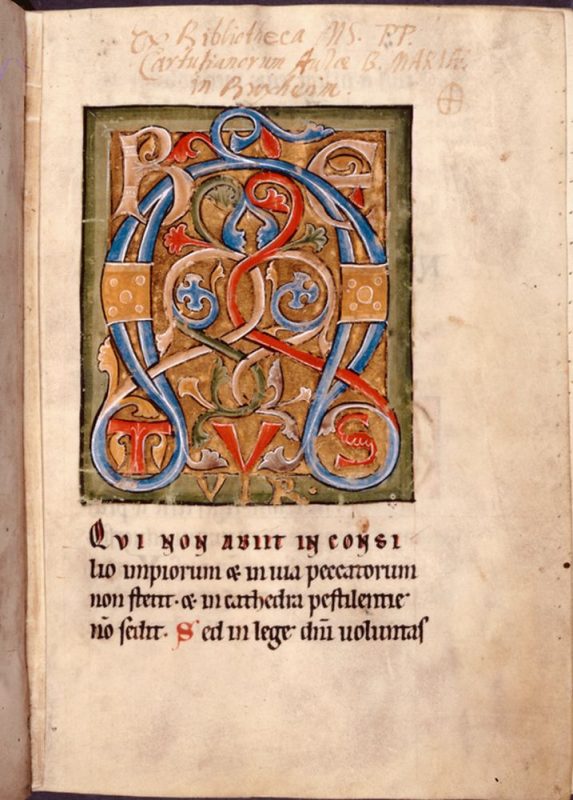 ex Bibliotheca MS. P.P.
Cartusianorum Aulæ B. MARIÆ
in Buxheim.
BEATVS
VIR·
QVI NON ABIIT IN CONSI
lio impiorum & in uia peccatorum
non stetit· & in cathedra pestilentie
nō sedit. Sed in lege dn̄i uoluntas